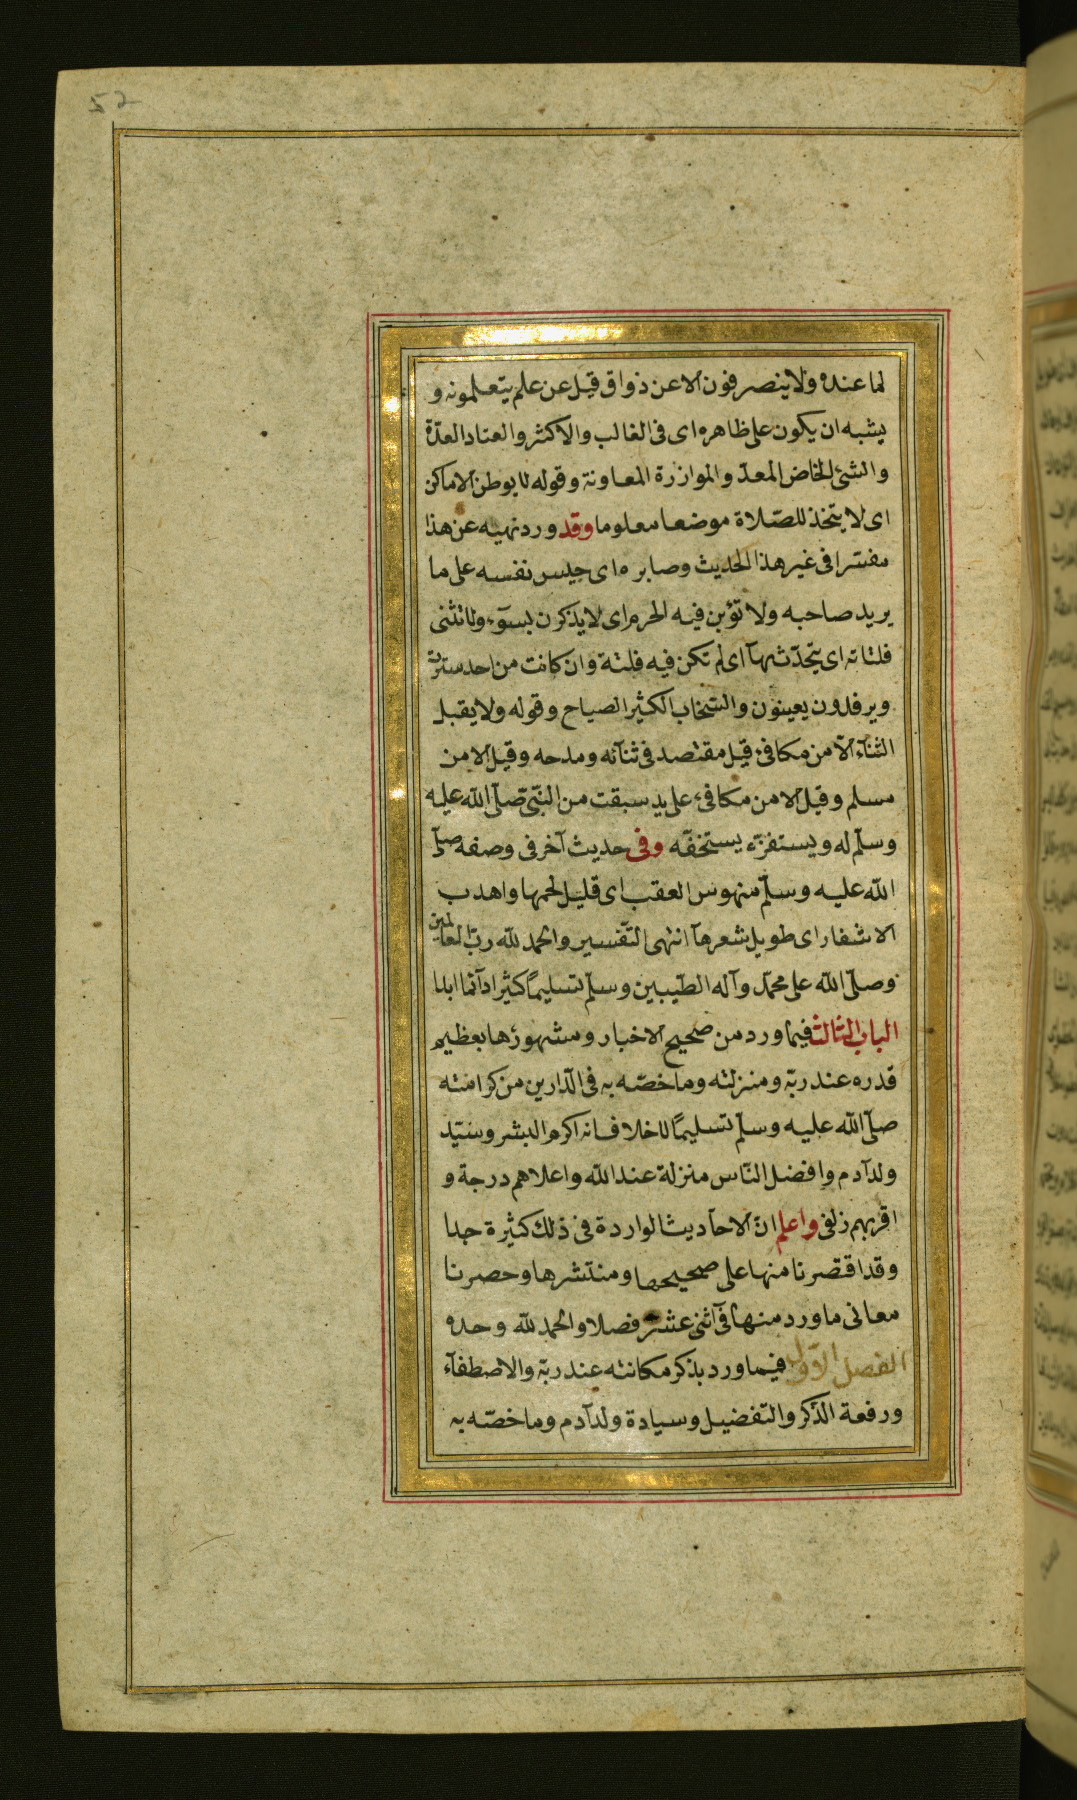 52
لما عنده ولا ينصرفون الا عن ذواق قيل عن علم يتعلمونه و
يشبه ان يكون على ظاهره اى فى الغالب والاكثر والعتاد العدّة
والشئ الخاض المعدّ والموازرة المعاونة وقوله لا يوطن الاماكن
اى لا يتخذ للصّلاة موضعا معلوما وقد ورد نهيه عن هذا
مفسّرا فى غير هذا الحديث وصابره اى حبس نفسه على ما
يريد صاحبه ولا تؤبن فيه الحرم اى لا يذكرن بسوٓء ولا تثنى
فلتاته اى يتحدّث بهآ اى لم تكن فيه فلتة وان كانت من احد سترت
ويرفدون يعينون والسّخاب الكثير الصياح وقوله ولا يقبل
الثنآء الّا من مكافىء قيل مقتصد فى ثنآئه ومدحه وقيل الا من
مسلم وقيل الا من مكافىء على يد سبقت من النّبىّ صلّى الله عليه
وسلّم له ويستفزّه يستخفّه وفى حديث آخر فى وصفه صلّى
الله عليه وسلّم منهوس العقب اى قليل لحمها واهدب
الاشفار اى طويل شعرهآ انتهى التّفسير والحمد لله ربّ العالمين
وصلّى الله على محمّد وآله الطّيبين وسلّم تسليمًا كثيرا دآئما ابدا
الباب الثالث فيما ورد من صحيح الاخبار ومشهورها بعظيم
قدره عند ربّه ومنزلته وما خصّه به فى الدّارين من كرامته
صلّى الله عليه وسلّم تسليمًا لا خلاف انه اكرم البشر وسيّد
ولد آدم وافضل النّاس منزلة عند الله واعلاهم درجة و
اقربهم زلفى واعلم انّ الاحاديث الواردة فى ذلك كثيرة جدا
وقد اقتصرنا منها على صحيحها ومنتشرها وحصرنا
معانى ما ورد منها فى آثنى عشر فصلا والحمد لله وحده
الفصل الاوّل فيما ورد بذكر مكانته عند ربّه والاصطفآء
ورفعة الذّكر والتّفضيل وسيادة ولد آدم وما خصّه به